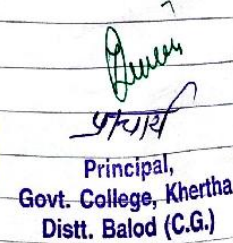 प्राचार्य
Principal,
Govt. College, Khertha
Distt. Balod (C.G.)